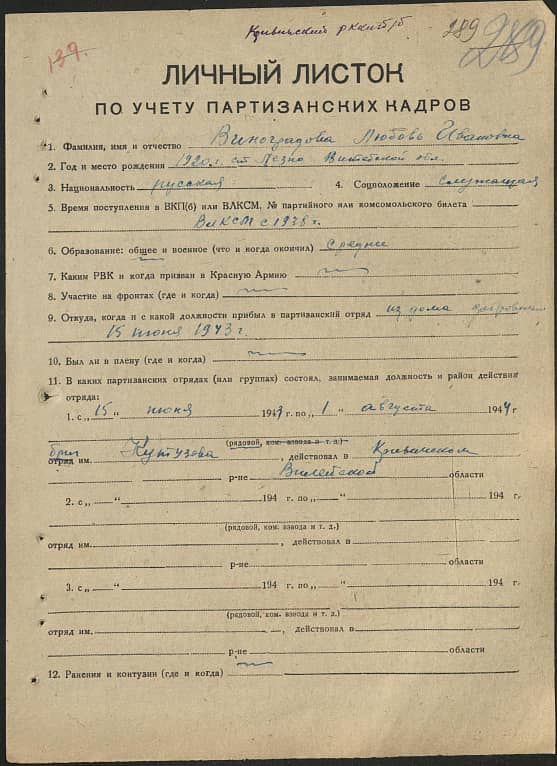 Кривичский рккпб/б 289 289
139.
ЛИЧНЫЙ ЛИСТОК
ПО УЧЕТУ ПАРТИЗАНСКИХ КАДРОВ
1. Фамилия, имя и отчество Виноградова Любовь Ивановна
2. Год и место рождения 1920 г. ст. Лезно Витебской обл.
3. Национальность русская 4. Соцположение служащая
5. Время поступления в ВКП(б) или ВЛКСМ, № партийного или комсомольского билета
ВЛКСМ с 1938 г.
6. Образование: общее и военное (что и когда окончил) средне
7. Каким РВК и когда призван в Красную Армию
8. Участие на фронтах (где и когда)
9. Откуда, когда и с какой должности прибыл в партизанский отряд из дома добровольно
15 июня 1943 г.
10. Был ли в плену (где и когда)
11. В каких партизанских отрядах (или группах) состоял, занимаемая должность и район действия
отряда:
1. с „ 15 “ июня 1943 г. по „ 1 “ августа 1944 г
(рядовой, ком. взвода и т. д.)
бриг отряд им. Кутузова, действовал в Кривичском
р-не Вилейской области
2. с „ “ 194 г. по „ “ 194 г.
(рядовой, ком. взвода и т. д.)
отряд им. , действовал в
р-не области
3. с „ “ 194 г. по „ “ 194 г.
(рядовой, ком. взвода и т. д.)
отряд им. , действовал в
р-не области
12. Ранения и контузии (где и когда)